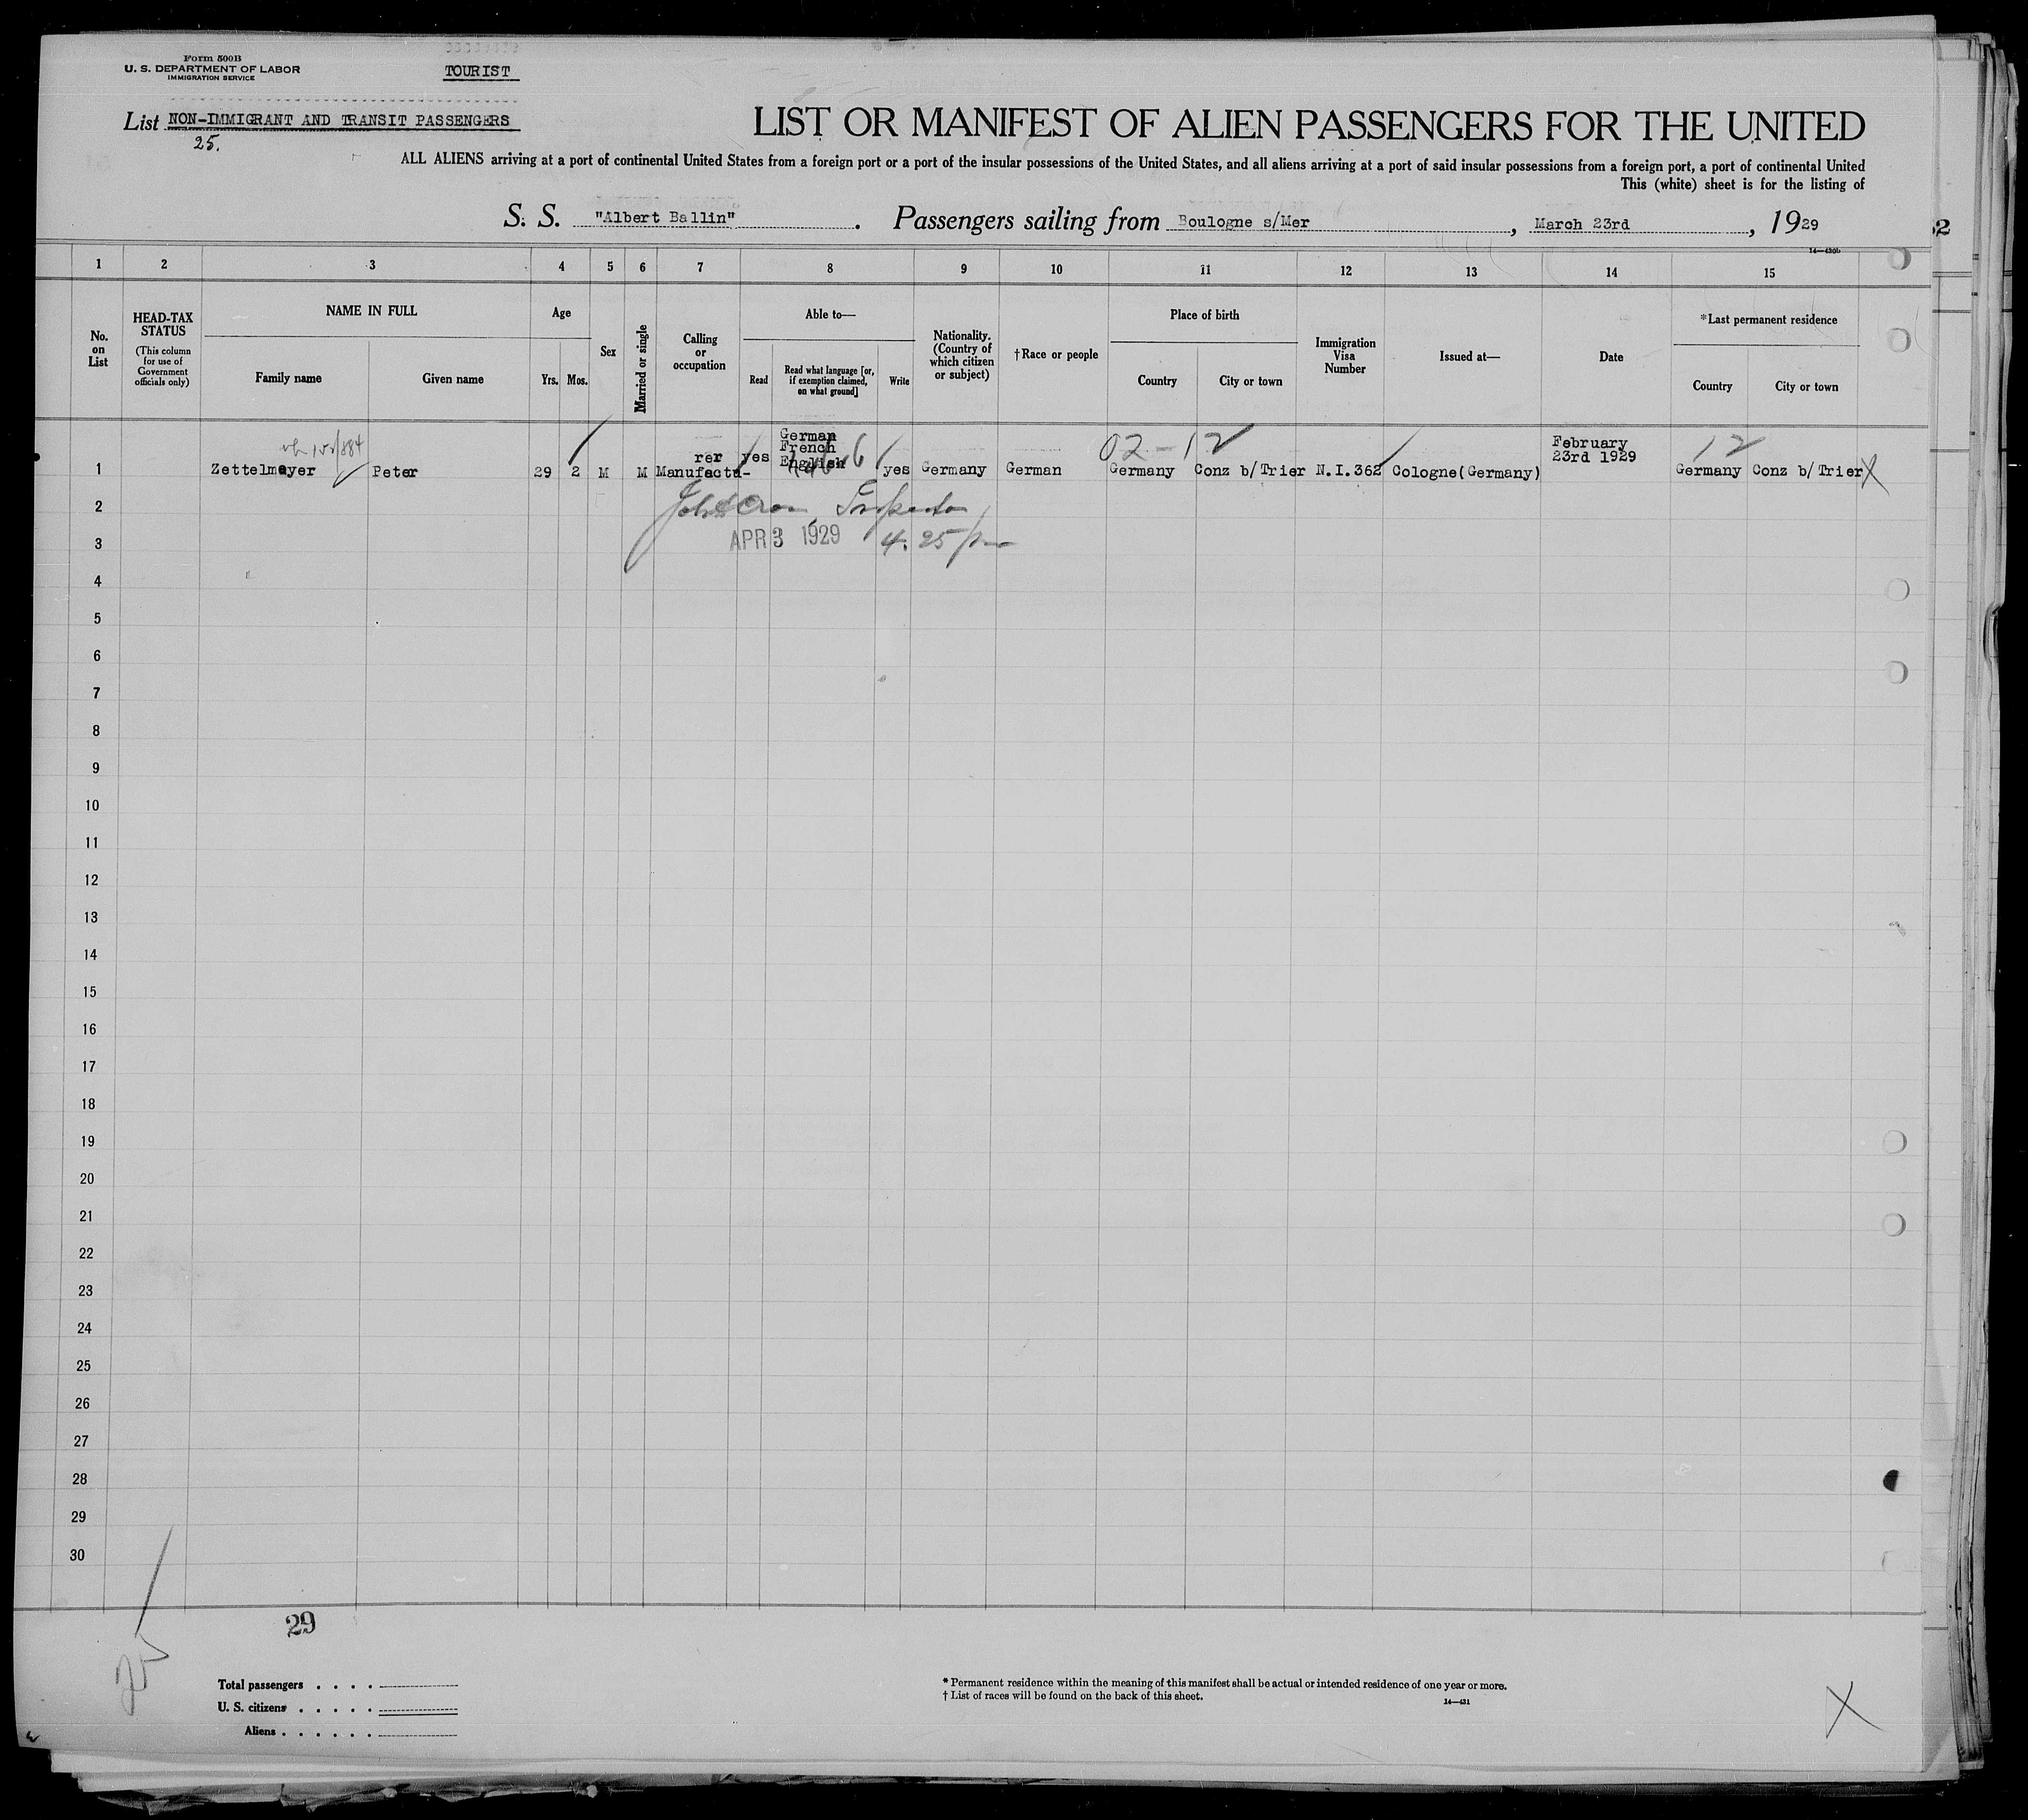 Form 500B
U. S. DEPARTMENT OF LABOR
IMMIGRATION SERVICE
TOURIST
List NON-IMMIGRANT AND TRANSIT PASSENGERS
25.
LIST OR MANIFEST OF ALIEN PASSENGERS FOR THE UNITED
ALL ALIENS arriving at a port of continental United States from a foreign port or a port of the insular possessions of the United States, and all aliens arriving at a port of said insular possessions from a foreign port, a port of continental United
This (white) sheet is for the listing of
S. S. "Albert Ballin". Passengers sailing from Boulogne s/Mer, March 23rd, 1929
14—430b
1 2 3 4 5 6 7 8 9 10 11 12 13 14 15
No. on List
HEAD-TAX STATUS
(This column for use of Government officials only)
NAME IN FULL
Family name Given name
Age
Yrs. Mos.
Sex
Married or single
Calling or occupation
Able to—
Read
Read what language [or, if exemption claimed, on what ground]
Write
Nationality. (Country of which citizen or subject)
†Race or people
Place of birth
Country City or town
Immigration Visa Number
Issued at—
Date
*Last permanent residence
Country City or town
02-12 12
1 Zettelmeyer Peter 29 2 M M Manufactu-rer yes German French English yes Germany German Germany Conz b/Trier N.I.362 Cologne(Germany) February 23rd 1929 Germany Conz b/Trier X
2 Inspector
3 APR 3 1929 4.25 pm
4
5
6
7
8
9
10
11
12
13
14
15
16
17
18
19
20
21
22
23
24
25
26
27
28
29
30
29
25
Total passengers . . . .
U. S. citizens . . . . .
Aliens . . . . . .
* Permanent residence within the meaning of this manifest shall be actual or intended residence of one year or more.
† List of races will be found on the back of this sheet.
14—431
X